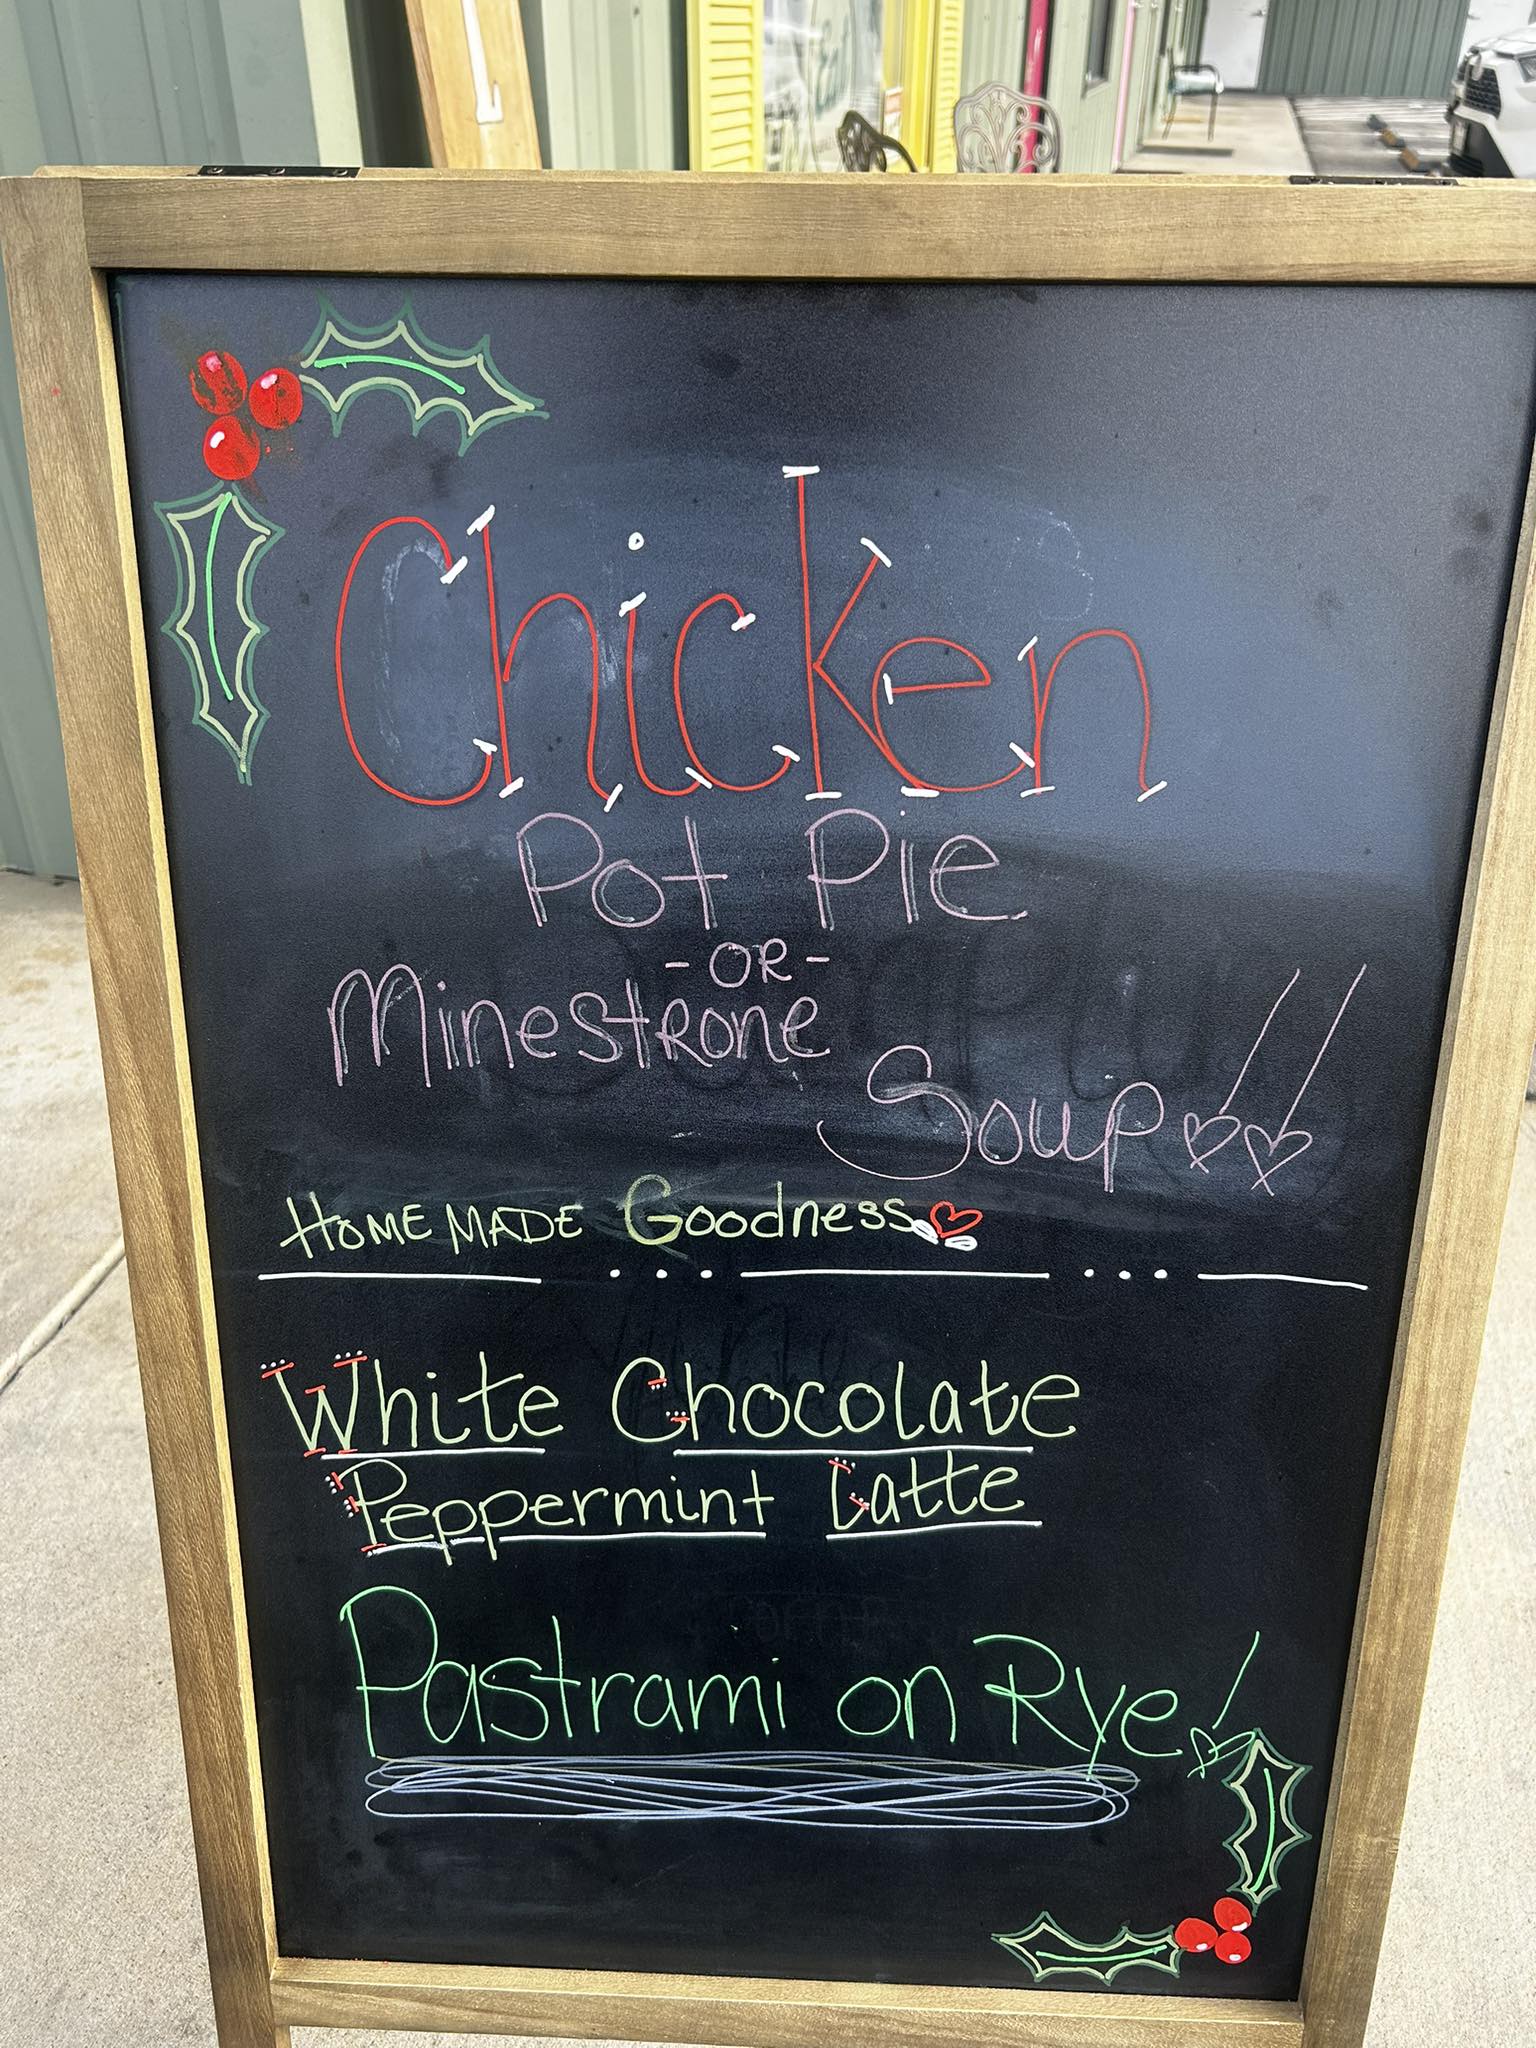 Chicken
Pot Pie
-OR-
Minestrone
Soup!!
HOMEMADE Goodness
White Chocolate
Peppermint Latte
Pastrami on Rye!